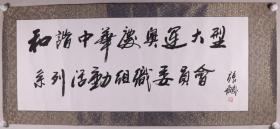 和谐中華慶奧運大型
系列活動組織委員會
張